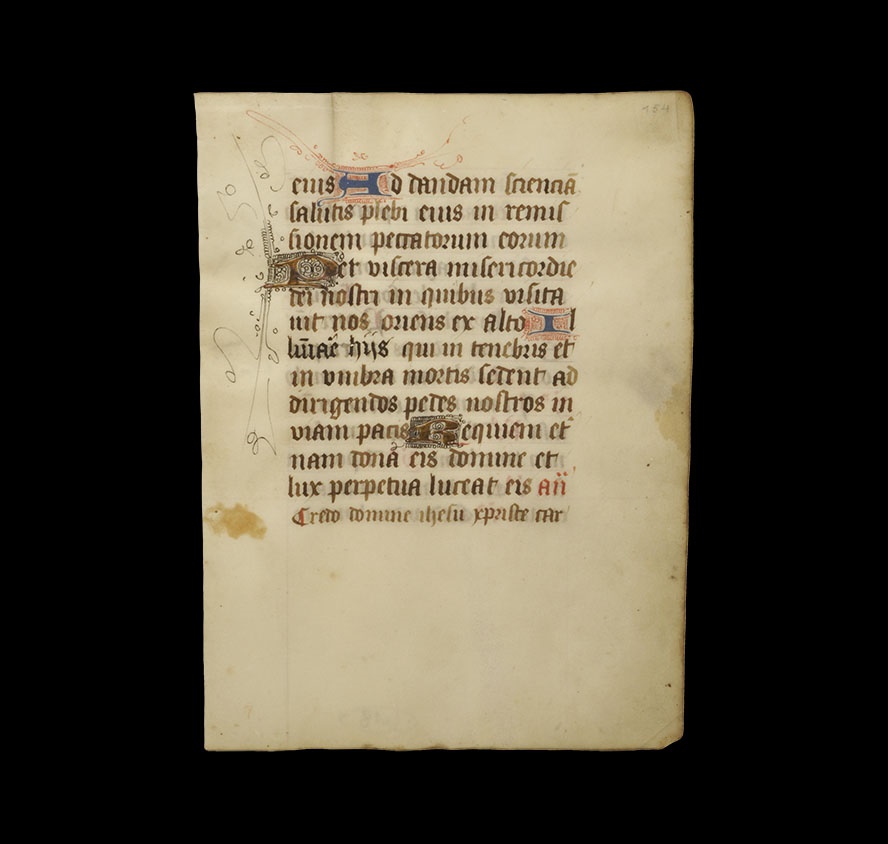 154
eius Ad dandam scienciā
salutis plebi eius in remis
sionem peccatorum eorum
Per viscera misericordie
dei nostri in quibus visita
uit nos oriens ex alto Il
lumīae hijs qui in tenebris et
in vmbra mortis sedent ad
dirigendos pedes nostros in
viam pacis Requiem et
nam donā eis domine et
lux perpetua luceat eis añ
Credo domine ihesu xpriste car